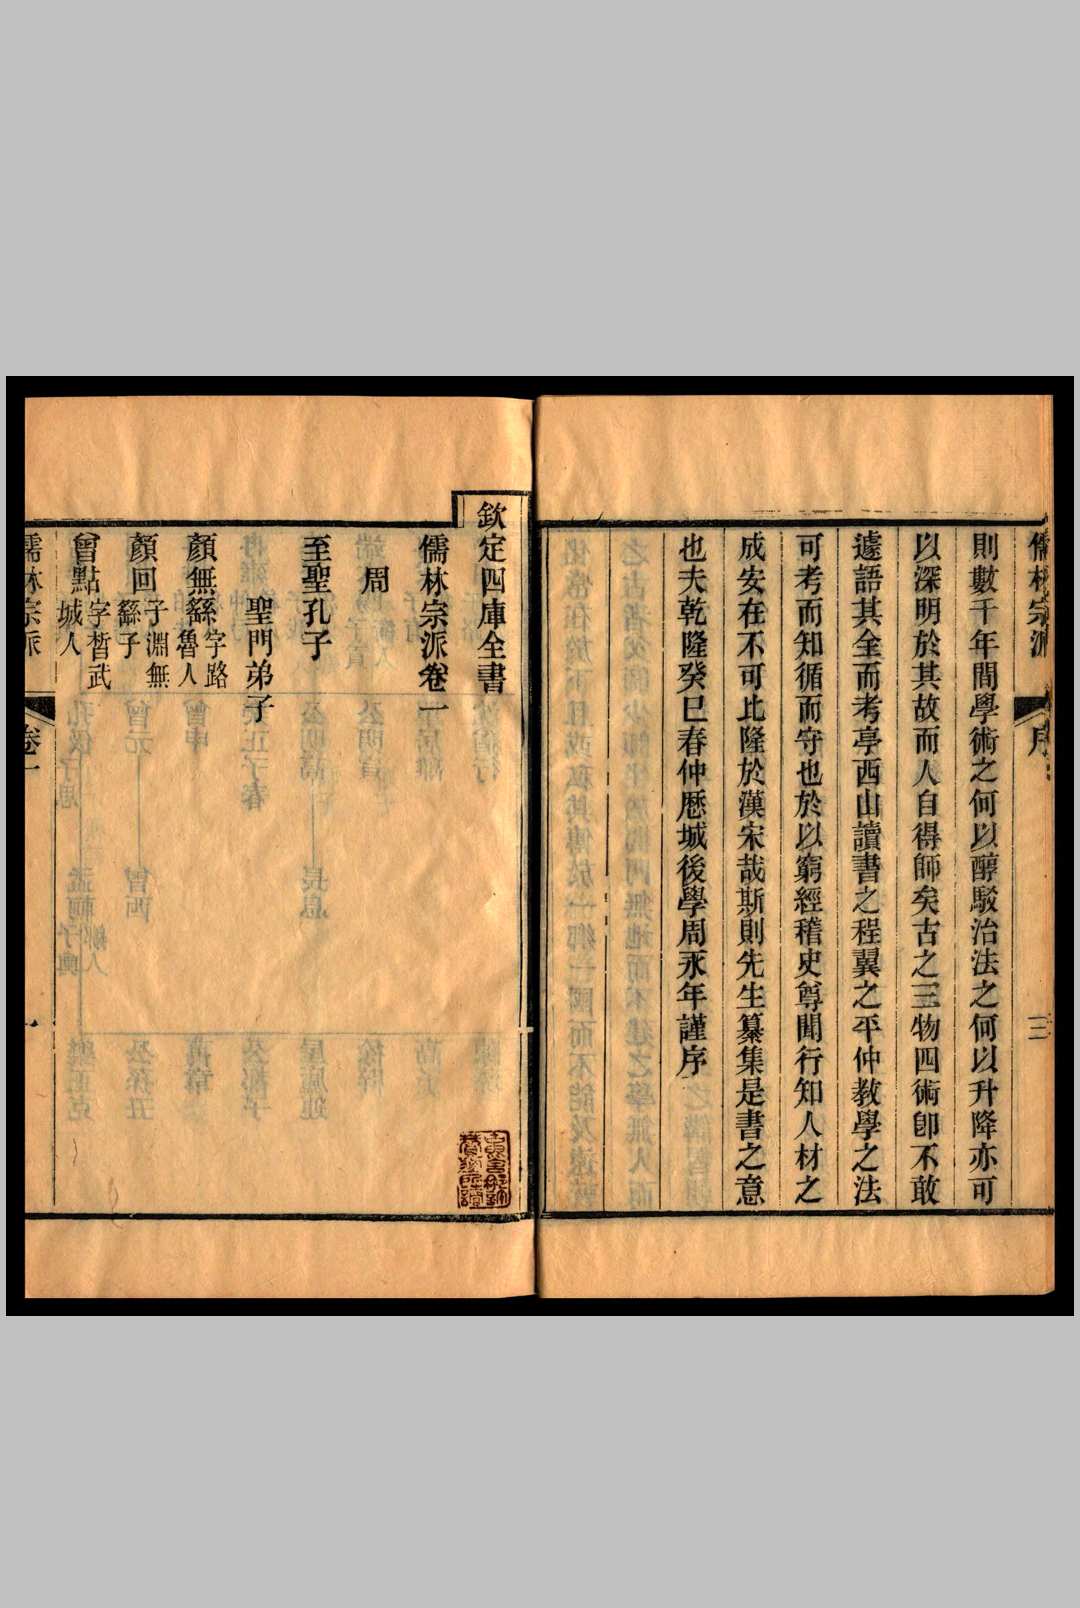 儒林宗派
序
三
則數千年間學術之何以醇駁治法之何以升降亦可
以深明於其故而人自得師矣古之三物四術卽不敢
遽語其全而考亭西山讀書之程翼之平仲教學之法
可考而知循而守也於以窮經稽史尊聞行知人材之
成安在不可比隆於漢宋哉斯則先生纂集是書之意
也夫乾隆癸巳春仲歷城後學周永年謹序
欽定四庫全書
儒林宗派卷一
周
至聖孔子
聖門弟子
顏無繇字路魯人
顏回子淵無繇子
曾點字晳武城人
儒林宗派
卷一